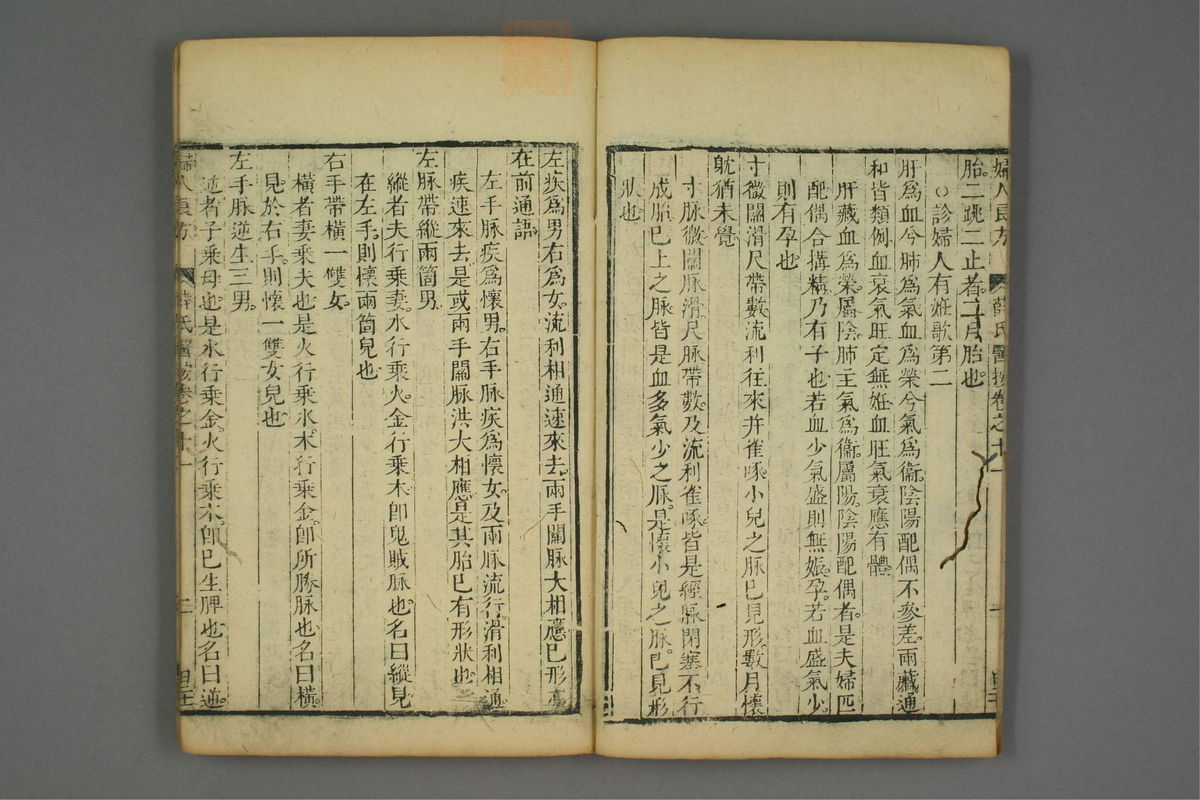 婦人良方 薛氏醫按卷之十一 一
胎二跳二止者二月胎也
○診婦人有姙歌第二
肝爲血兮肺爲氣血爲榮兮氣爲衞陰陽配偶不參差兩臟通
和皆類例血衰氣旺定無姙血旺氣衰應有體
肝藏血爲榮屬陰肺主氣爲衞屬陽陰陽配偶者是夫婦匹
配偶合搆精乃有子也若血少氣盛則無娠孕若血盛氣少
則有孕也
寸微關滑尺帶數流利往來并雀啄小兒之脉已見形數月懷
躭猶未覺
寸脉微關脉滑尺脉帶數及流利雀啄皆是經脉閉塞不行
成胎已上之脉皆是血多氣少之脉是懷小兒之脉已見形
狀也
左疾爲男右爲女流利相通速來去兩手關脉大相應已形亦
在前通語
左手脉疾爲懷男右手脉疾爲懷女及兩脉流行滑利相通
疾速來去是或兩手關脉洪大相應是其胎已有形狀也
左脉帶縱兩箇男
縱者夫行乘妻水行乘火金行乘木卽鬼賊脉也名曰縱見
在左手則懷兩箇兒也
右手帶橫一雙女
橫者妻乘夫也是火行乘水木行乘金卽所勝脉也名曰橫
見於右手則懷一雙女兒也
左手脉逆生三男
逆者子乘母也是水行乘金火行乘木卽已生脾也名曰逆
婦人良方 薛氏醫按卷之十一 二